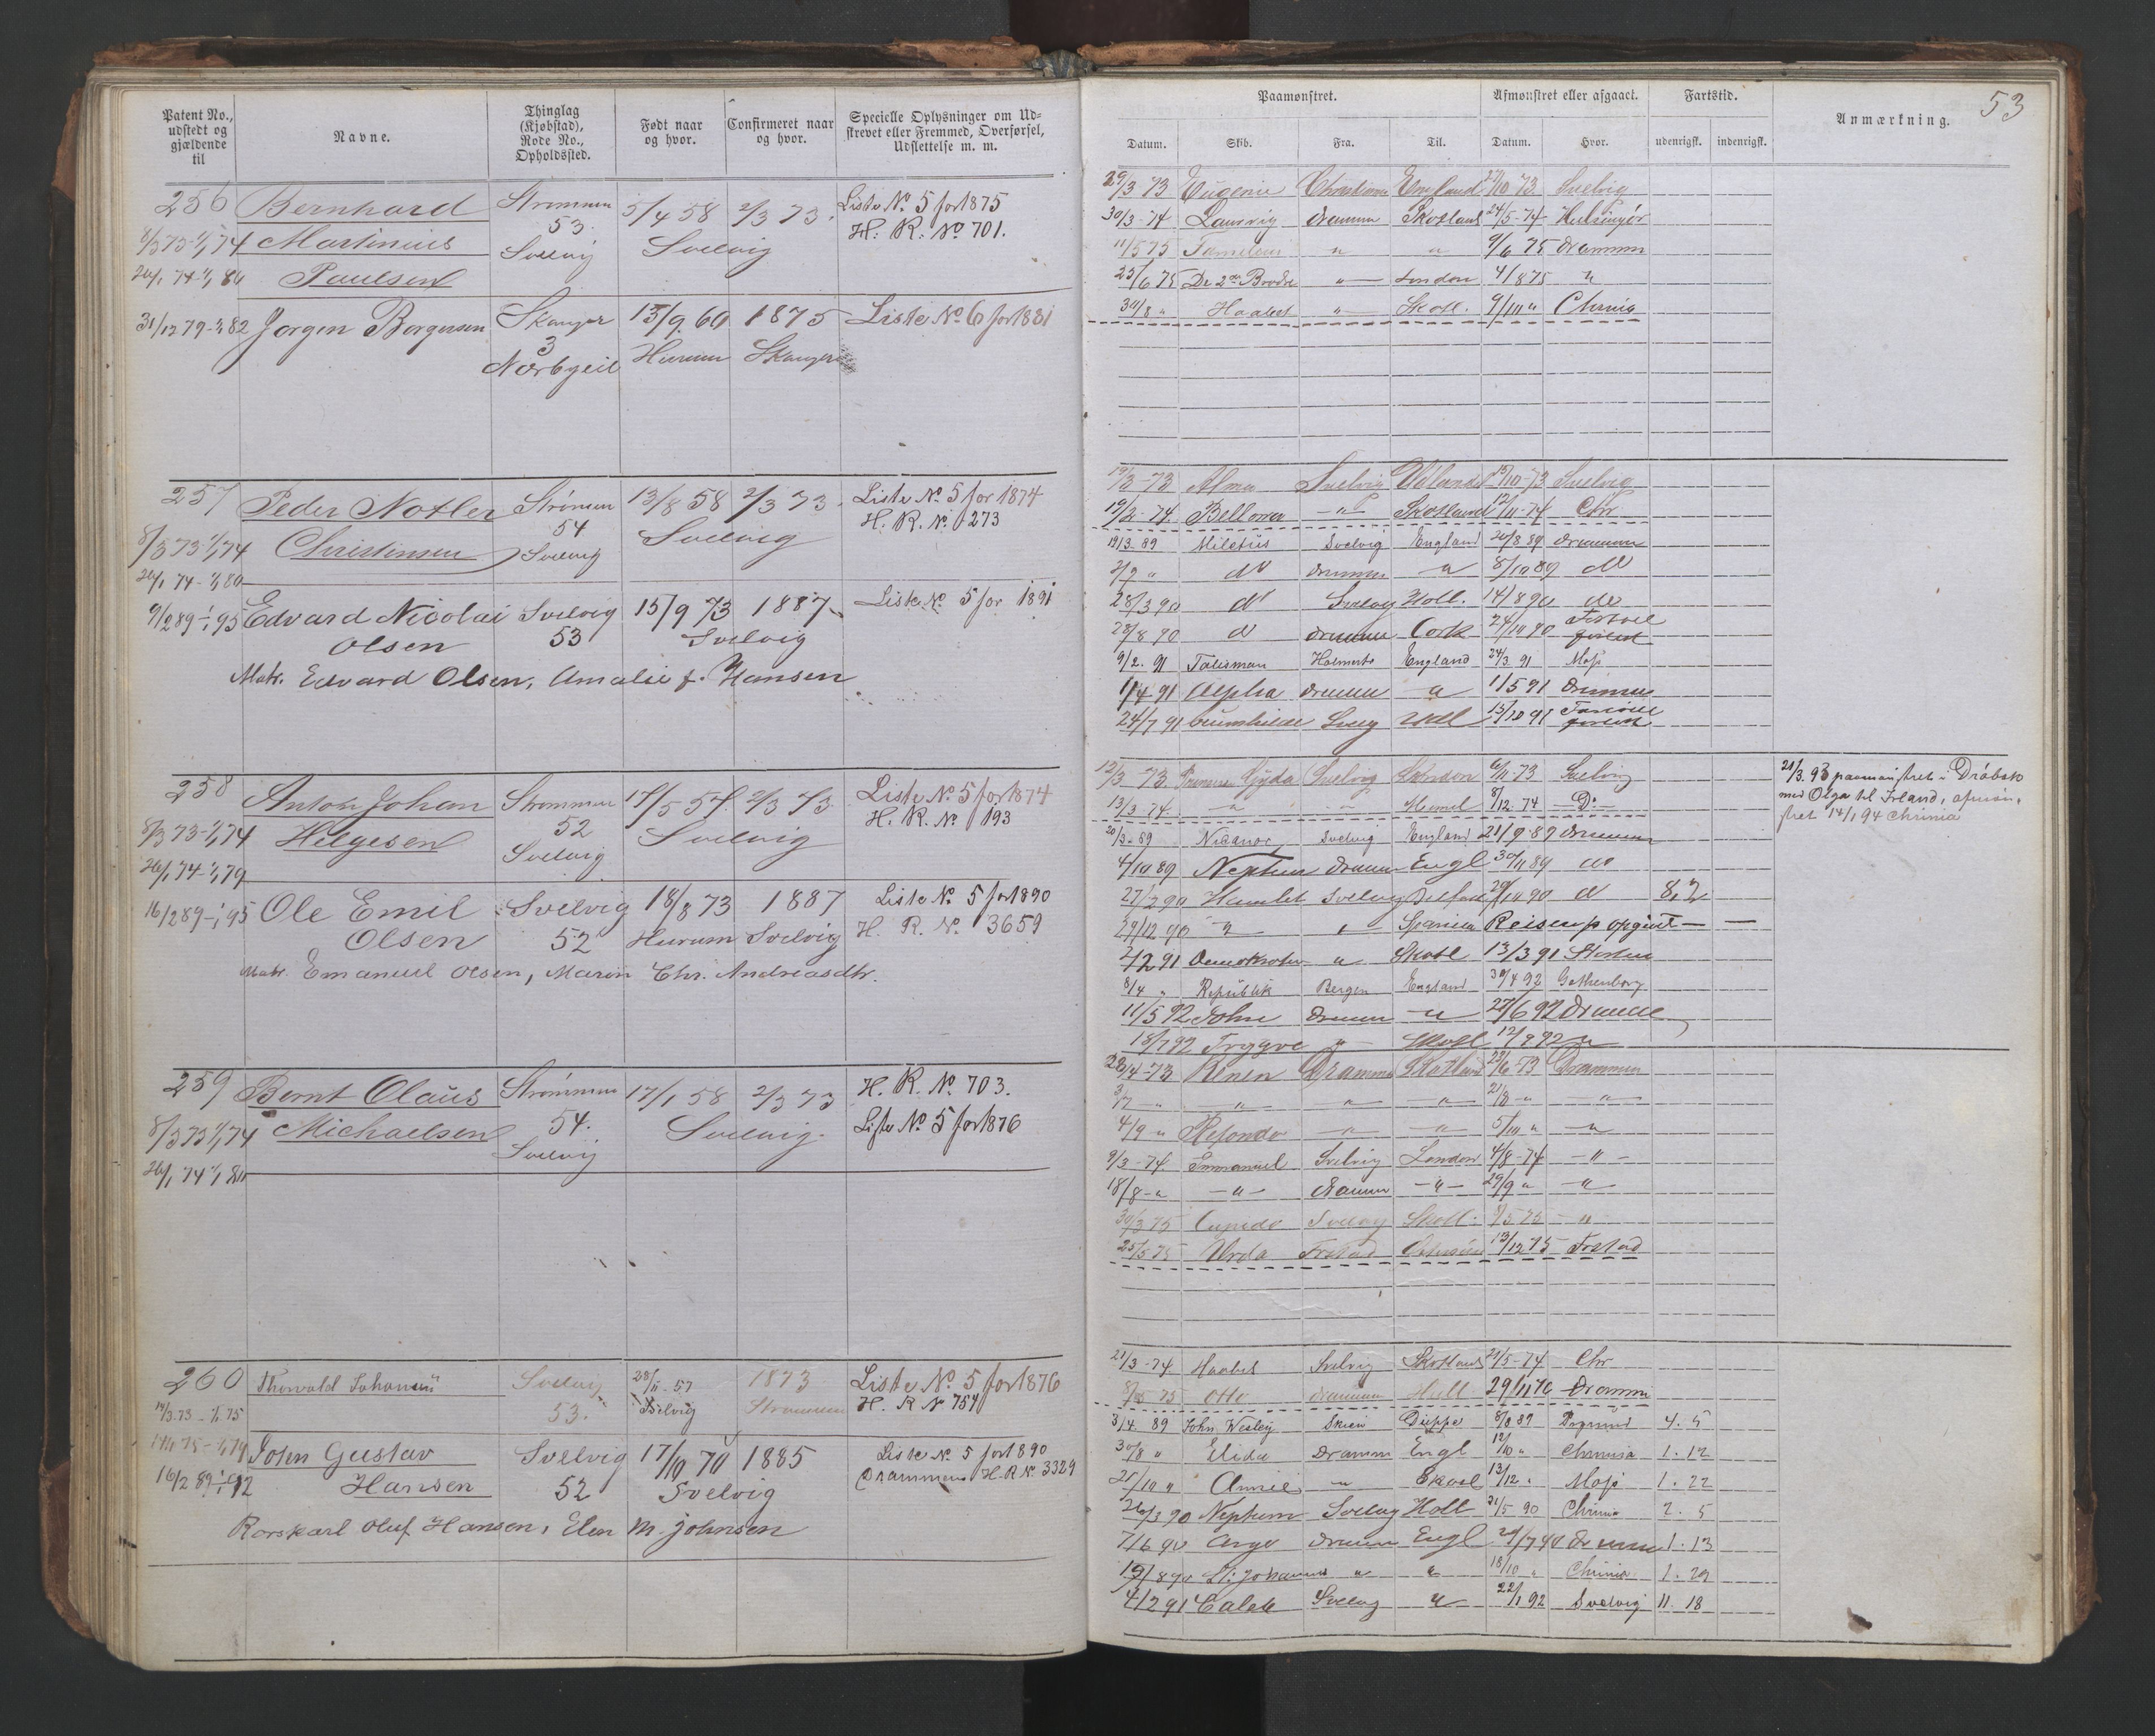 53
Patent No., udstedt og gjældende til
Navne.
Thinglag (Kjøbstad), Rode No., Opholdssted.
Født naar og hvor.
Confirmeret naar og hvor.
Specielle Oplysninger om Udskrevet eller Fremmed, Overførsel, Udslettelse m. m.
256 Bernhard Strømmen 5/4 58 2/3 73. Liste No. 5 for 1875
8/3 73-1/1 74 Martinius 53. Svelvig H. R. No 701.
Svelvig
26/1 74-1/1 80 Paulsen
31/12 79-1/1 82 Jørgen Borgersen Skanger 13/9 60 1875 Liste No 6 for 1881
3 Hurum Skanger
257 Peder Notler Strømmen 13/8 58 2/3 73. Liste No. 5 for 1874
54 H. R. No. 273
8/3 73-1/1 74 Christinsen Svelvig Svelvig
26/1 74-1/1 80
9/2 89-1/1 95 Edvard Nicolai Svelvig 15/9 73 1887 Liste No. 5 for 1891
Olsen 53 Svelvig
Matr. Edvard Olsen, Amalie f. Hansen
258 Anton Johan Strømmen 17/5 57. 2/3 73. Liste No. 5 for 1874
52 H. R. No. 193
8/3 73-1/1 74 Helgesen Svelvig Svelvig
26/1 74-1/1 79
16/2 89-1/1 95 Ole Emil Svelvig 18/8 73 1887 Liste No. 5 for 1890
Olsen 52 Hurum Svelvig H. R. No. 3659
Matr. Emanuel Olsen, Maren Chr. Andreasdtr.
259 Bernt Olaus Strømmen 17/1 58 2/3 73 H. R. No. 703.
8/3 73 1/1 74 Michaelsen 54. Svelvig. Liste No. 5 for 1876
Svelvig
26/1 74 1/1 80
260 Thorvald Johansen Svelvig 28/11-57 1873 Liste No. 5 for 1876
14/3 73 - 1/1 75 53. Svelvig Strømmen H. R No 754
John Gustav Svelvig 17/10 70 1885 Liste No. 5 for 1890
16/2 89-1/1 92 Hansen 52 Svelvig Drammens H. R No. 3329
Rorskarl Oluf Hansen, Elen M. Johnsen
Paamønstret.
Afmønstret eller afgaaet.
Fartstid.
Anmærkning.
Datum. Skib. Fra. Til. Datum. Hvor. udenrigsk. indenrigsk.
29/3 73 Eugenie Christiania England 10 73 Svelvig
30/3-74 Laurvig Drammen Skotland 24/5-74 Helsingør
11/5 75 " " 9/6 75 Drammen
25/6 75 De 2de Brødre " London 4/8 75 "
30/8 " Haabet " Skotl. 9/10 " Chrnia
19/3-73 Alma Svelvig Udlandet 15/10-73 Svelvig
19/2-74. Bellona " Skotland 12/11-74 Chr
19/3. 89 Miletus Svelvig England 20/8 89 Drammen
2/9 " do Drammen " 8/10 89 do
28/3 90 do Svelvig Holl. 14/8 90 do
28/8 90 do Drammen Cork 24/10 90
9/2. 91 Talisman Holmestr England 24/3. 91 Moss
1/4 91 Alpha Drammen " 1/5 91 Drammen
24/7 91 Svelvig 13/10 91
12/3 73 Gyda Svelvig London 6/11 73 Svelvig
13/3-74. " " Memel 8/12. 74 Do
20/3-89 Nicanor Svelvig England 21/9-89 Drammen
4/10 89 Neptun Drammen Engl 30/11 89 do
27/2 90 Hamlet Svelvig Belfast 20/10 90 do 8,2
29/12 90 " " Spanien Reisen opgivet
2/2 91 Demokraten " Skotl 13/3 91
8/4 " Republik Bergen England 30/4 92 Gothenborg
11/5 92 John Drammen " 27/6 92 Drammen
18/7 92 Trygve " Skotl 12/9 92 "
21/3. 93 paamønstret i Drøbak
med Olga til Irland, afmøn-
stret 14/1 94 Chrinia
28/4-73 Drammen Skotland 23/6-73 Drammen
3/7 " " " " 21/8 " "
4/9 " " " 5/10 " "
9/3-74. Emmanuel Svelvig London 4/8-74 "
18/8 " " Drammen " 29/9 " "
30/3 75 Cupido Svelvig Skotl. 9/5 75 "
25/5 75 Urda Frstad 13/12 75 Frstad
21/3-74 Haabet Svelvig Skotland 21/5-74 Chr
Otto Drammen Hull 29/11 76 Drammen
3/4. 89 John Wesley Skien Dieppe 8/8 89 4. 5
30/8 " Elida Drammen Engl 12/10 " Chrinia 1. 12
25/10 " Annie " Skotl 13/12 " Moss 1. 22
26/3 90 Neptun Svelvig Holl 31/5 90 Chrinia 2. 5
7/6 90 Argo Drammen Engl 20/7 90 Drammen 1. 13
19/8 90 St. Johannes " " 18/10 " Chrinia 1. 29
4/2 91 Caleb Svelvig " 22/1 92 Svelvig 11. 18